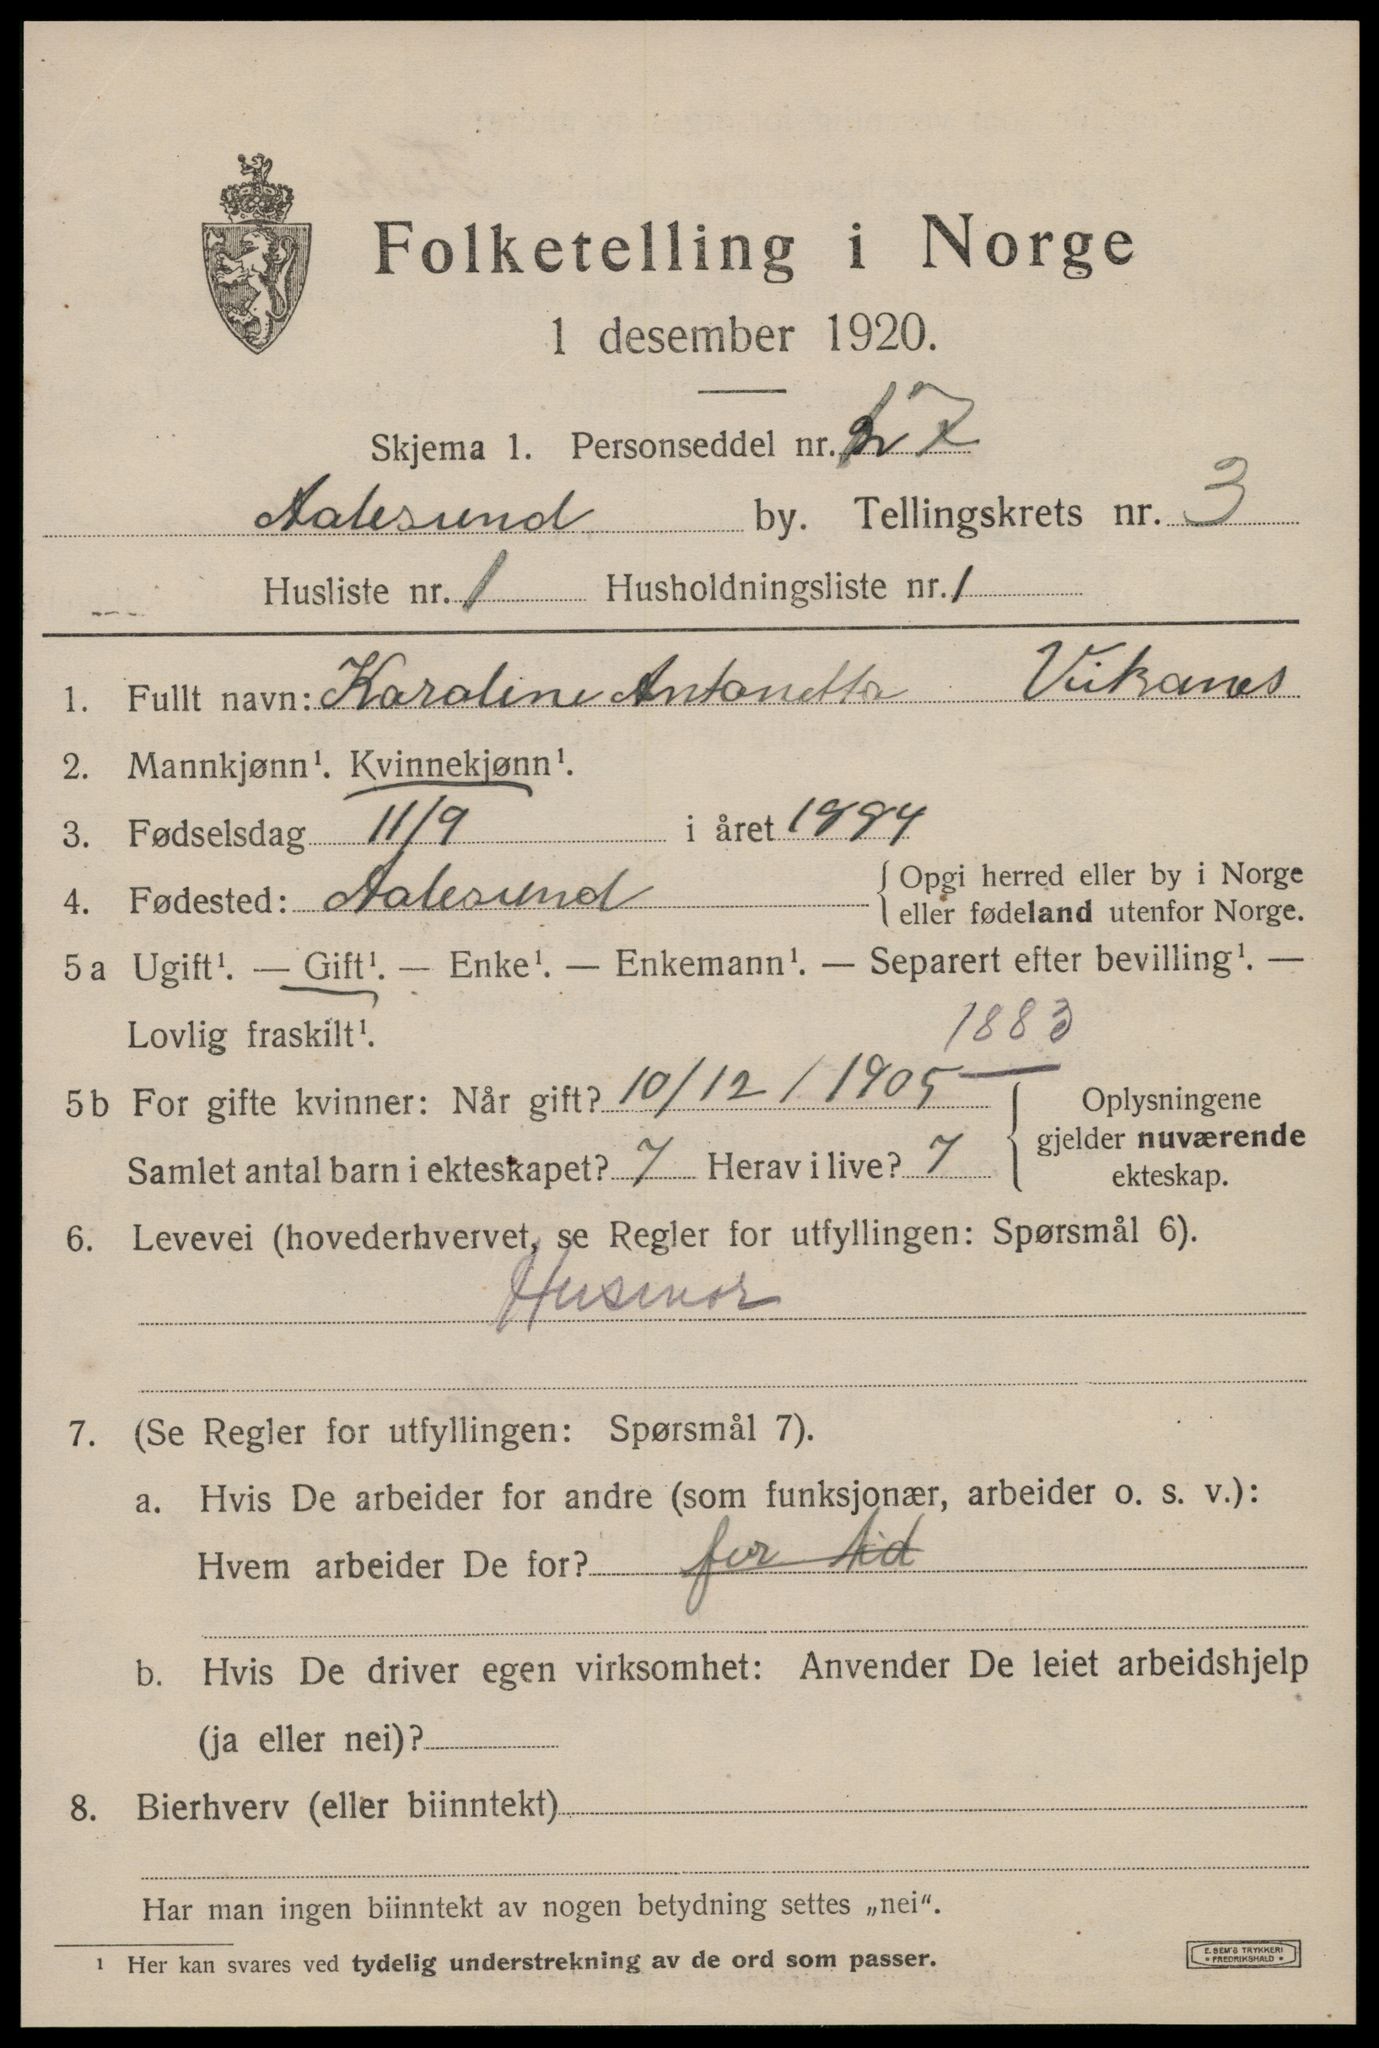 Folketelling i Norge
1 desember 1920.
Skjema 1. Personseddel nr. 7
Aalesund by. Tellingskrets nr. 3
Husliste nr. 1 Husholdningsliste nr. 1
1. Fullt navn: Karoline Antonetta Vikanes
2. Mannkjønn¹. Kvinnekjønn¹.
3. Fødselsdag 11/9 i året 1884
4. Fødested: Aalesund { Opgi herred eller by i Norge
eller fødeland utenfor Norge.
5 a Ugift¹. — Gift¹. — Enke¹. — Enkemann¹. — Separert efter bevilling¹. —
Lovlig fraskilt¹.
1883
5 b For gifte kvinner: Når gift? 10/12/1905 { Oplysningene
gjelder nuværende
ekteskap.
Samlet antal barn i ekteskapet? 7 Herav i live? 7
6. Levevei (hovederhvervet, se Regler for utfyllingen: Spørsmål 6).
Husmor
7. (Se Regler for utfyllingen: Spørsmål 7).
a. Hvis De arbeider for andre (som funksjonær, arbeider o. s. v.):
Hvem arbeider De for? for tid
b. Hvis De driver egen virksomhet: Anvender De leiet arbeidshjelp
(ja eller nei)?
8. Bierhverv (eller biinntekt)
Har man ingen biinntekt av nogen betydning settes „nei“.
¹ Her kan svares ved tydelig understrekning av de ord som passer.
E. SEM'S TRYKKERI
• FREDRIKSHALD •